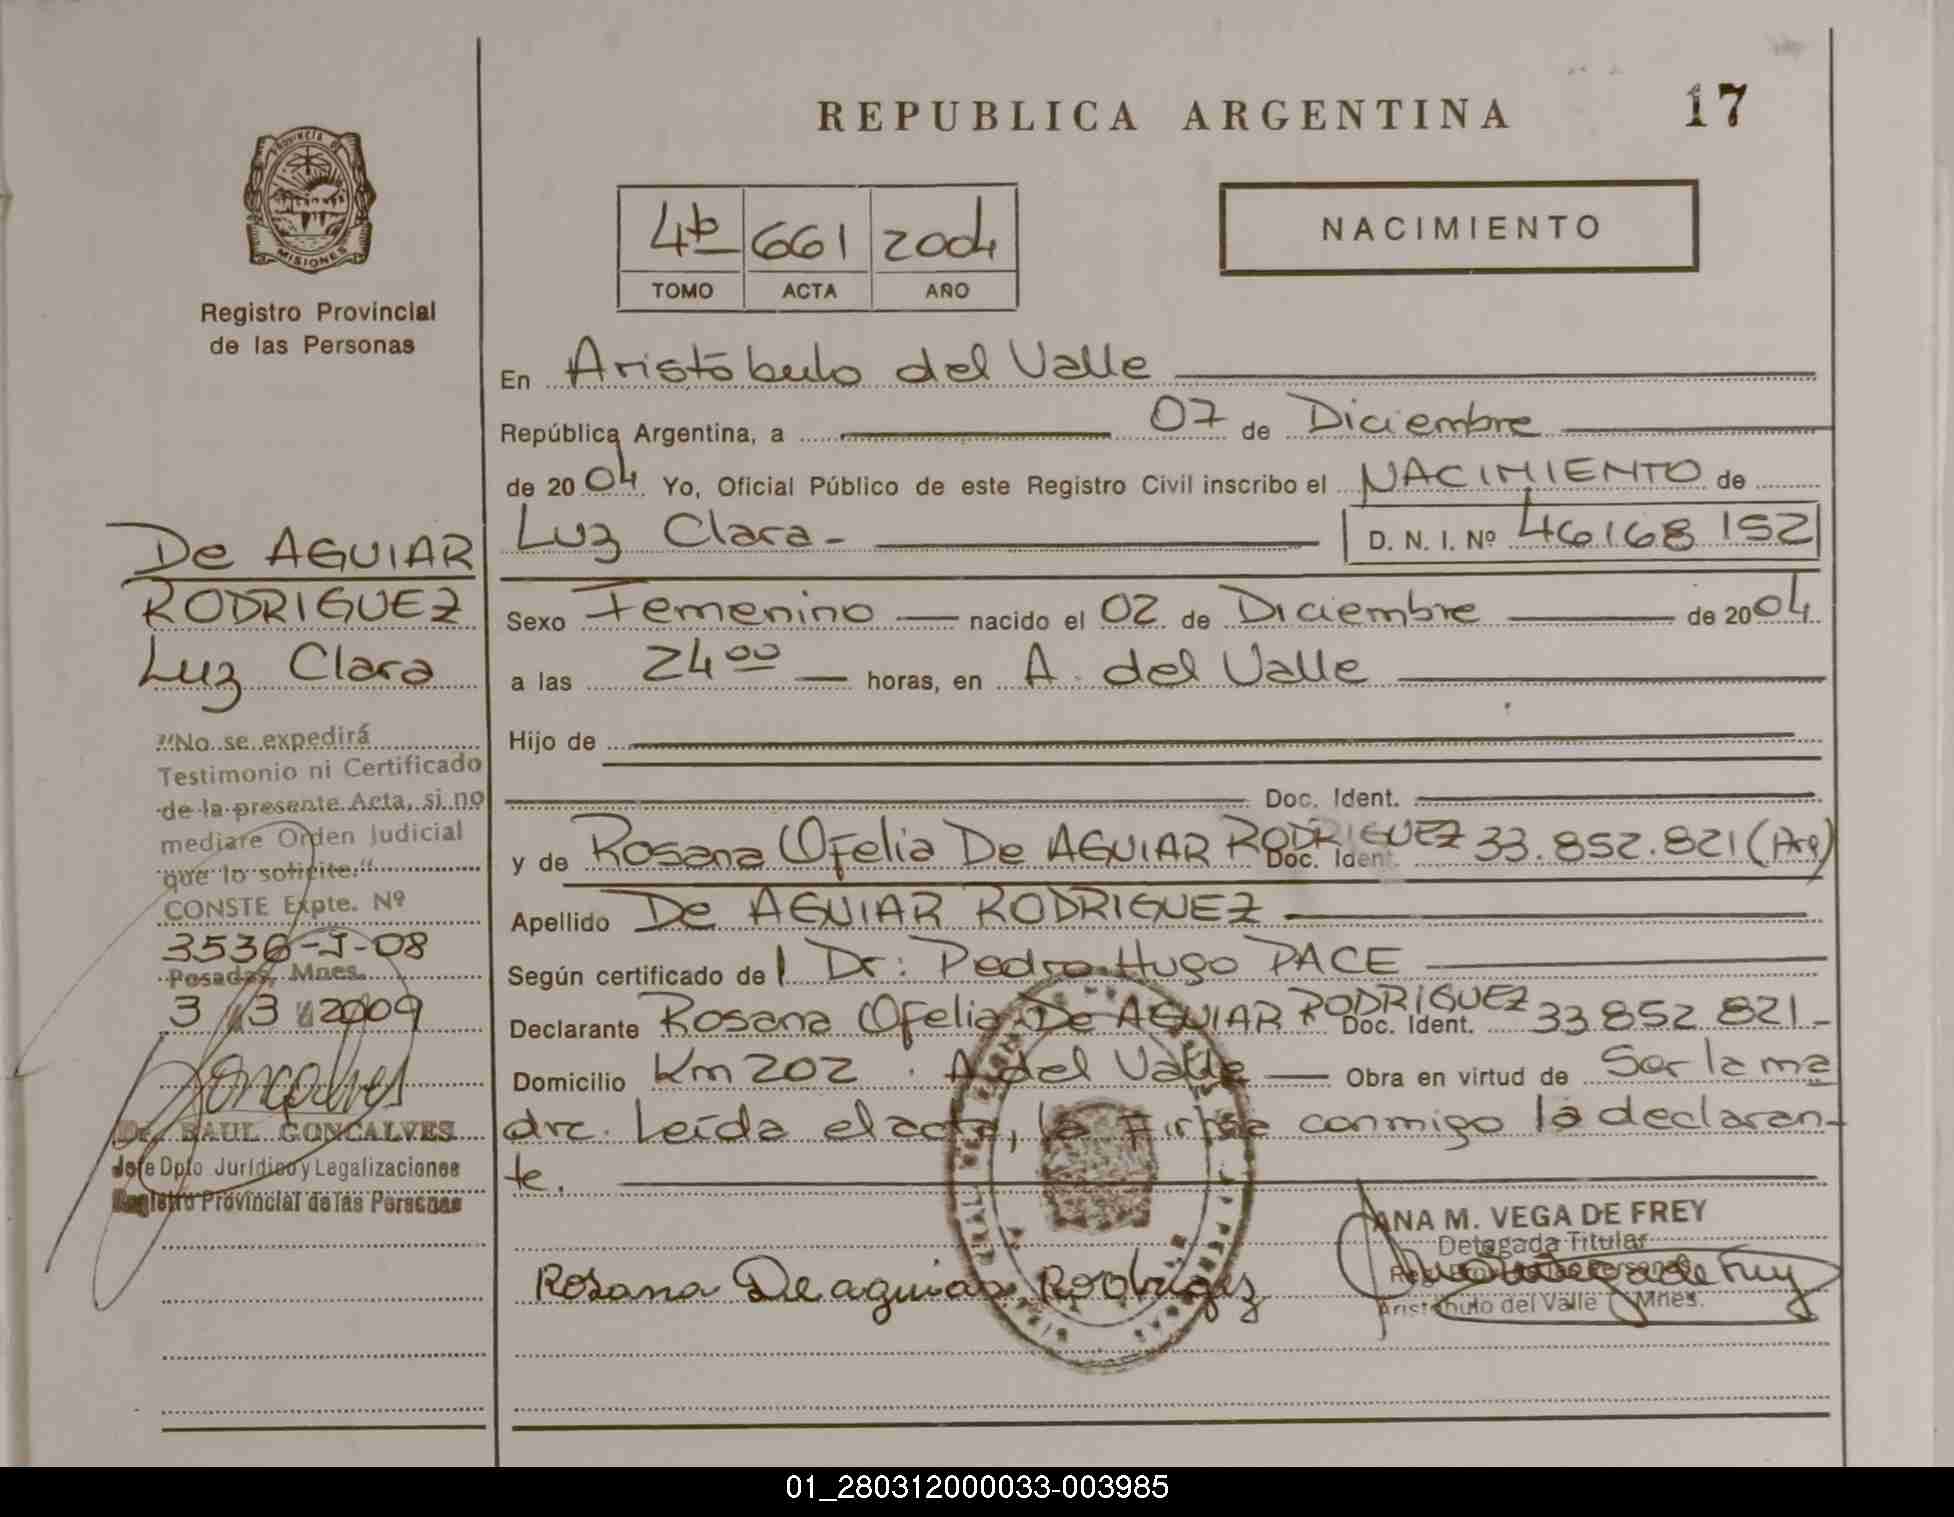 REPUBLICA ARGENTINA
17
PROVINCIA DE
MISIONES
Registro Provincial
de las Personas
4to 661 2004
TOMO ACTA AÑO
NACIMIENTO
En Aristóbulo del Valle
República Argentina, a 07 de Diciembre
de 2004 Yo, Oficial Público de este Registro Civil inscribo el NACIMIENTO de
Luz Clara - D. N. I. Nº 46168 152
Sexo Femenino nacido el 02 de Diciembre de 2004
a las 24 00 horas, en A. del Valle
Hijo de
Doc. Ident.
y de Rosana Ofelia De AGUIAR RODRIGUEZ Doc. Ident. 33.852.821 (Arg)
Apellido De AGUIAR RODRIGUEZ
Según certificado del Dr: Pedro Hugo PACE
Declarante Rosana Ofelia De AGUIAR RODRIGUEZ Doc. Ident. 33 852 821 -
Domicilio Km 202 . A del Valle Obra en virtud de Ser la ma
dre. Leída el acta, la firma conmigo la declaran-
te.
ANA M. VEGA DE FREY
Delegada Titular
Aristóbulo del Valle Mnes.
Rosana De aguiar Rodriguez
De AGUIAR
RODRIGUEZ
Luz Clara
"No se expedirá
Testimonio ni Certificado
de la presente Acta, si no
mediare Orden Judicial
que lo solicite."
CONSTE Expte. Nº
3536-J-08
Posadas, Mnes.
3 3 2009
Goncalves
Dr. RAUL GONCALVES
Jefe Dpto Jurídico y Legalizaciones
Registro Provincial de las Personas
01_280312000033-003985